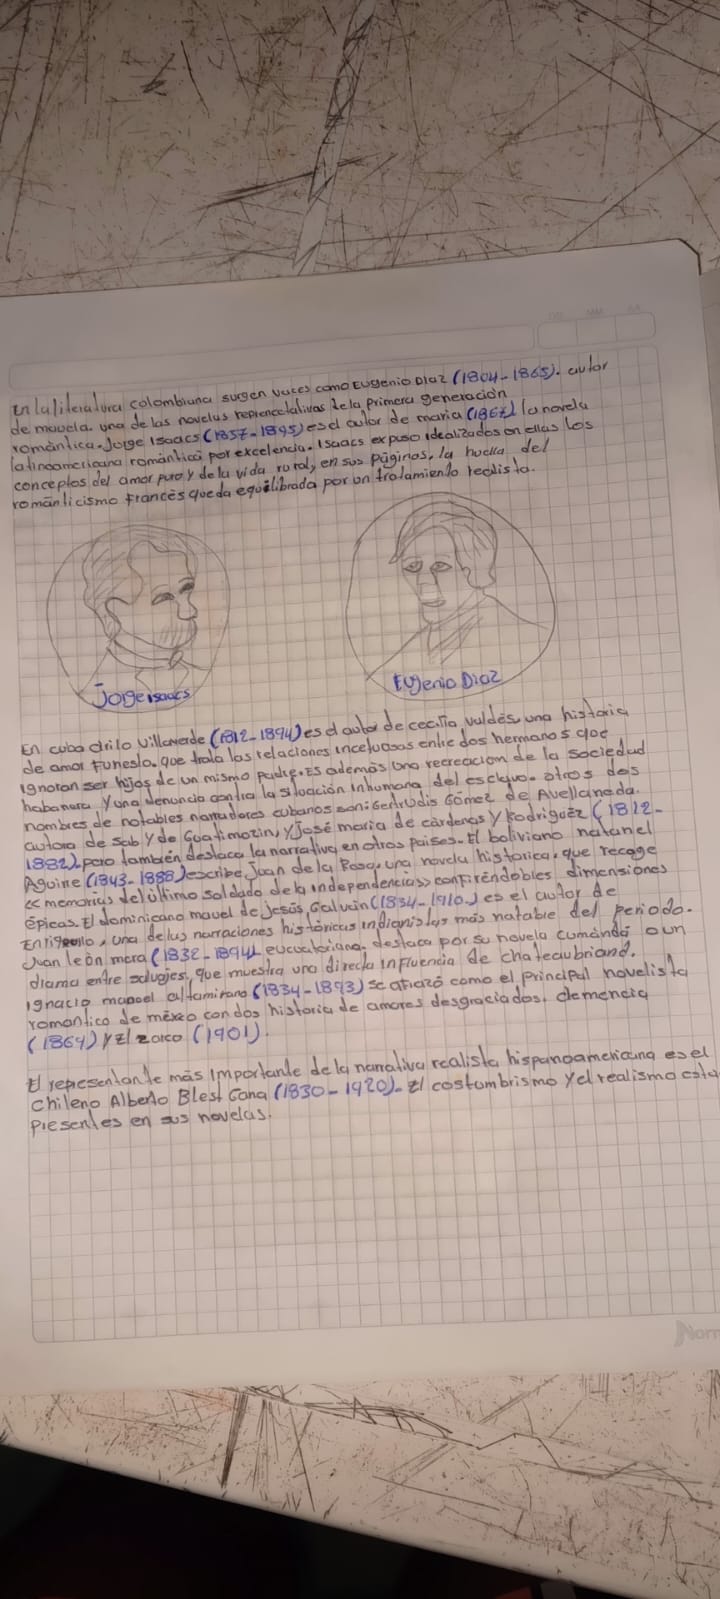 En la literatura colombiana surgen voces como Eugenio Diaz (1804-1865). autor
de mauela. una de las novelas reprencetativas de la primera generación
romántica. Jorge Isaacs (1857-1895) es el autor de maria (1867) la novela
latinoamericana romántica por excelencia. Isaacs expuso idealizados en ellas los
conceptos del amor puro y de la vida rural, en sus páginas, la huella del
romanticismo Francés queda equilibrada por un tratamiento realista.
Jorge isaacs
Eugenio Diaz
En cuba cirilo Villaverde (1812-1894) es el autor de cecilia valdés, una historia
de amor Funesto, que trata las relaciones incetuosas entre dos hermanos que
ignoran ser hijos de un mismo padre. Es además una recreacion de la sociedad
habanera y una denuncia contra la situación inhumana del esclavo. otros dos
nombres de notables narradores cubanos son: Gertrudis Gómez de Avellaneda.
autora de Sab y de Guatimozin, y José maria de cárdenas y Rodriguez (1812-
1882) pero también destaca la narrativa en otros paises. El boliviano natanel
Aguirre (1843-1888) escribe Juan de la Rosa, una novela historica, que recoge
<< memorias del último soldado de la independencias>> confiréndobles dimensiones
épicas. El dominicano mauel de jesús, Galvain (1834-1910.) es el autor de
Enriquillo, una de las narraciones históricas indianistas más natable del periodo.
Juan león mera (1832-1894) eucuatoiana. destaca por su novela cumandá o un
drama entre salvajes, que muestra una directa influencia de chateaubriand.
ignacio manoel altamirano (1834-1893) se afiazó como el principal novelista
romantico de méxico con dos historia de amores desgraciados. clemencia
(1864) y El zarco (1901).
El representante más importante de la narrativa realista hispanoamericana es el
chileno Alberto Blest Gana (1830-1920). El costumbrismo y el realismo esta
presentes en sus novelas.